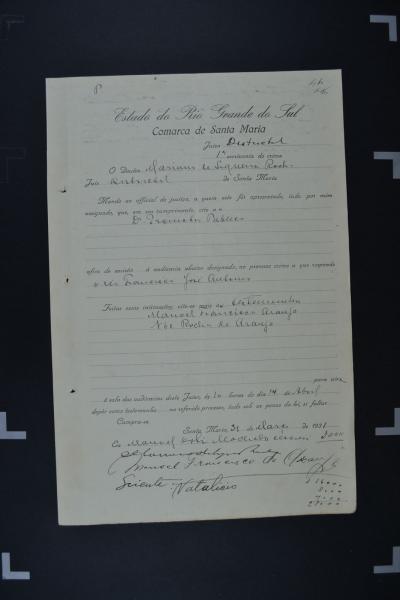 Estado do Rio Grande do Sul
Comarca de Santa Maria
Juizo Districtal
1º escrivania do crime
O Doutor Mariano de Siqueira Rocha
Juiz Districtal de Santa Maria
Mando ao official de justiça, a quem este fôr apresentado, indo por mim
assignado, que, em seu cumprimento, cite a o
Dr. Promotor Publico
afim de assistir á audiencia abaixo designada, no processo crime a que responde
o réo Francisco José Antonio
Feitas essas intimações, cite-se mais as testemunhas
Manoel Francisco Araujo
Noé Rocha de Araujo
para vir
á sala das audiencias deste Juizo, ás 10 horas do dia 14 de Abril
depôr como testemunha no referido processo, tudo sob as penas da lei, si faltar.
Cumpra-se.
Santa Maria, 31 de Março de 1931
Eu Manoel
Manoel Francisco de Araujo
Sciente Natalicio